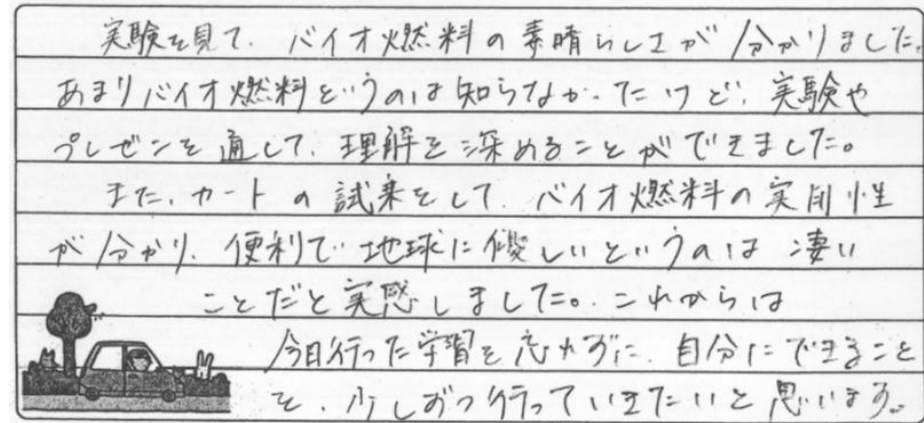 実験を見て、バイオ燃料の素晴らしさが分かりました。
あまりバイオ燃料というのは知らなかったけど、実験や
プレゼンを通して、理解を深めることができました。
また、カートの試乗をして、バイオ燃料の実用性
が分かり、便利で地球に優しいというのは凄い
ことだと実感しました。これからは
今日行った学習を忘れずに、自分にできること
を、少しずつ行っていきたいと思います。